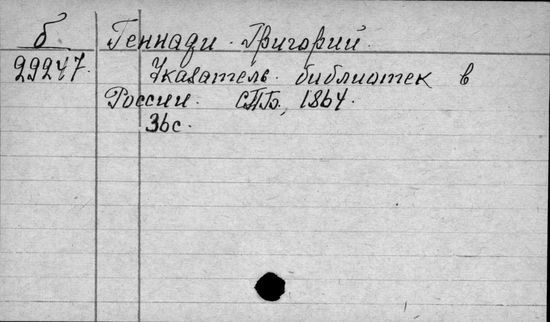 б Геннади Григорий.
29247. Указатель библиотек в
России. СПБ, 1864.
36с.